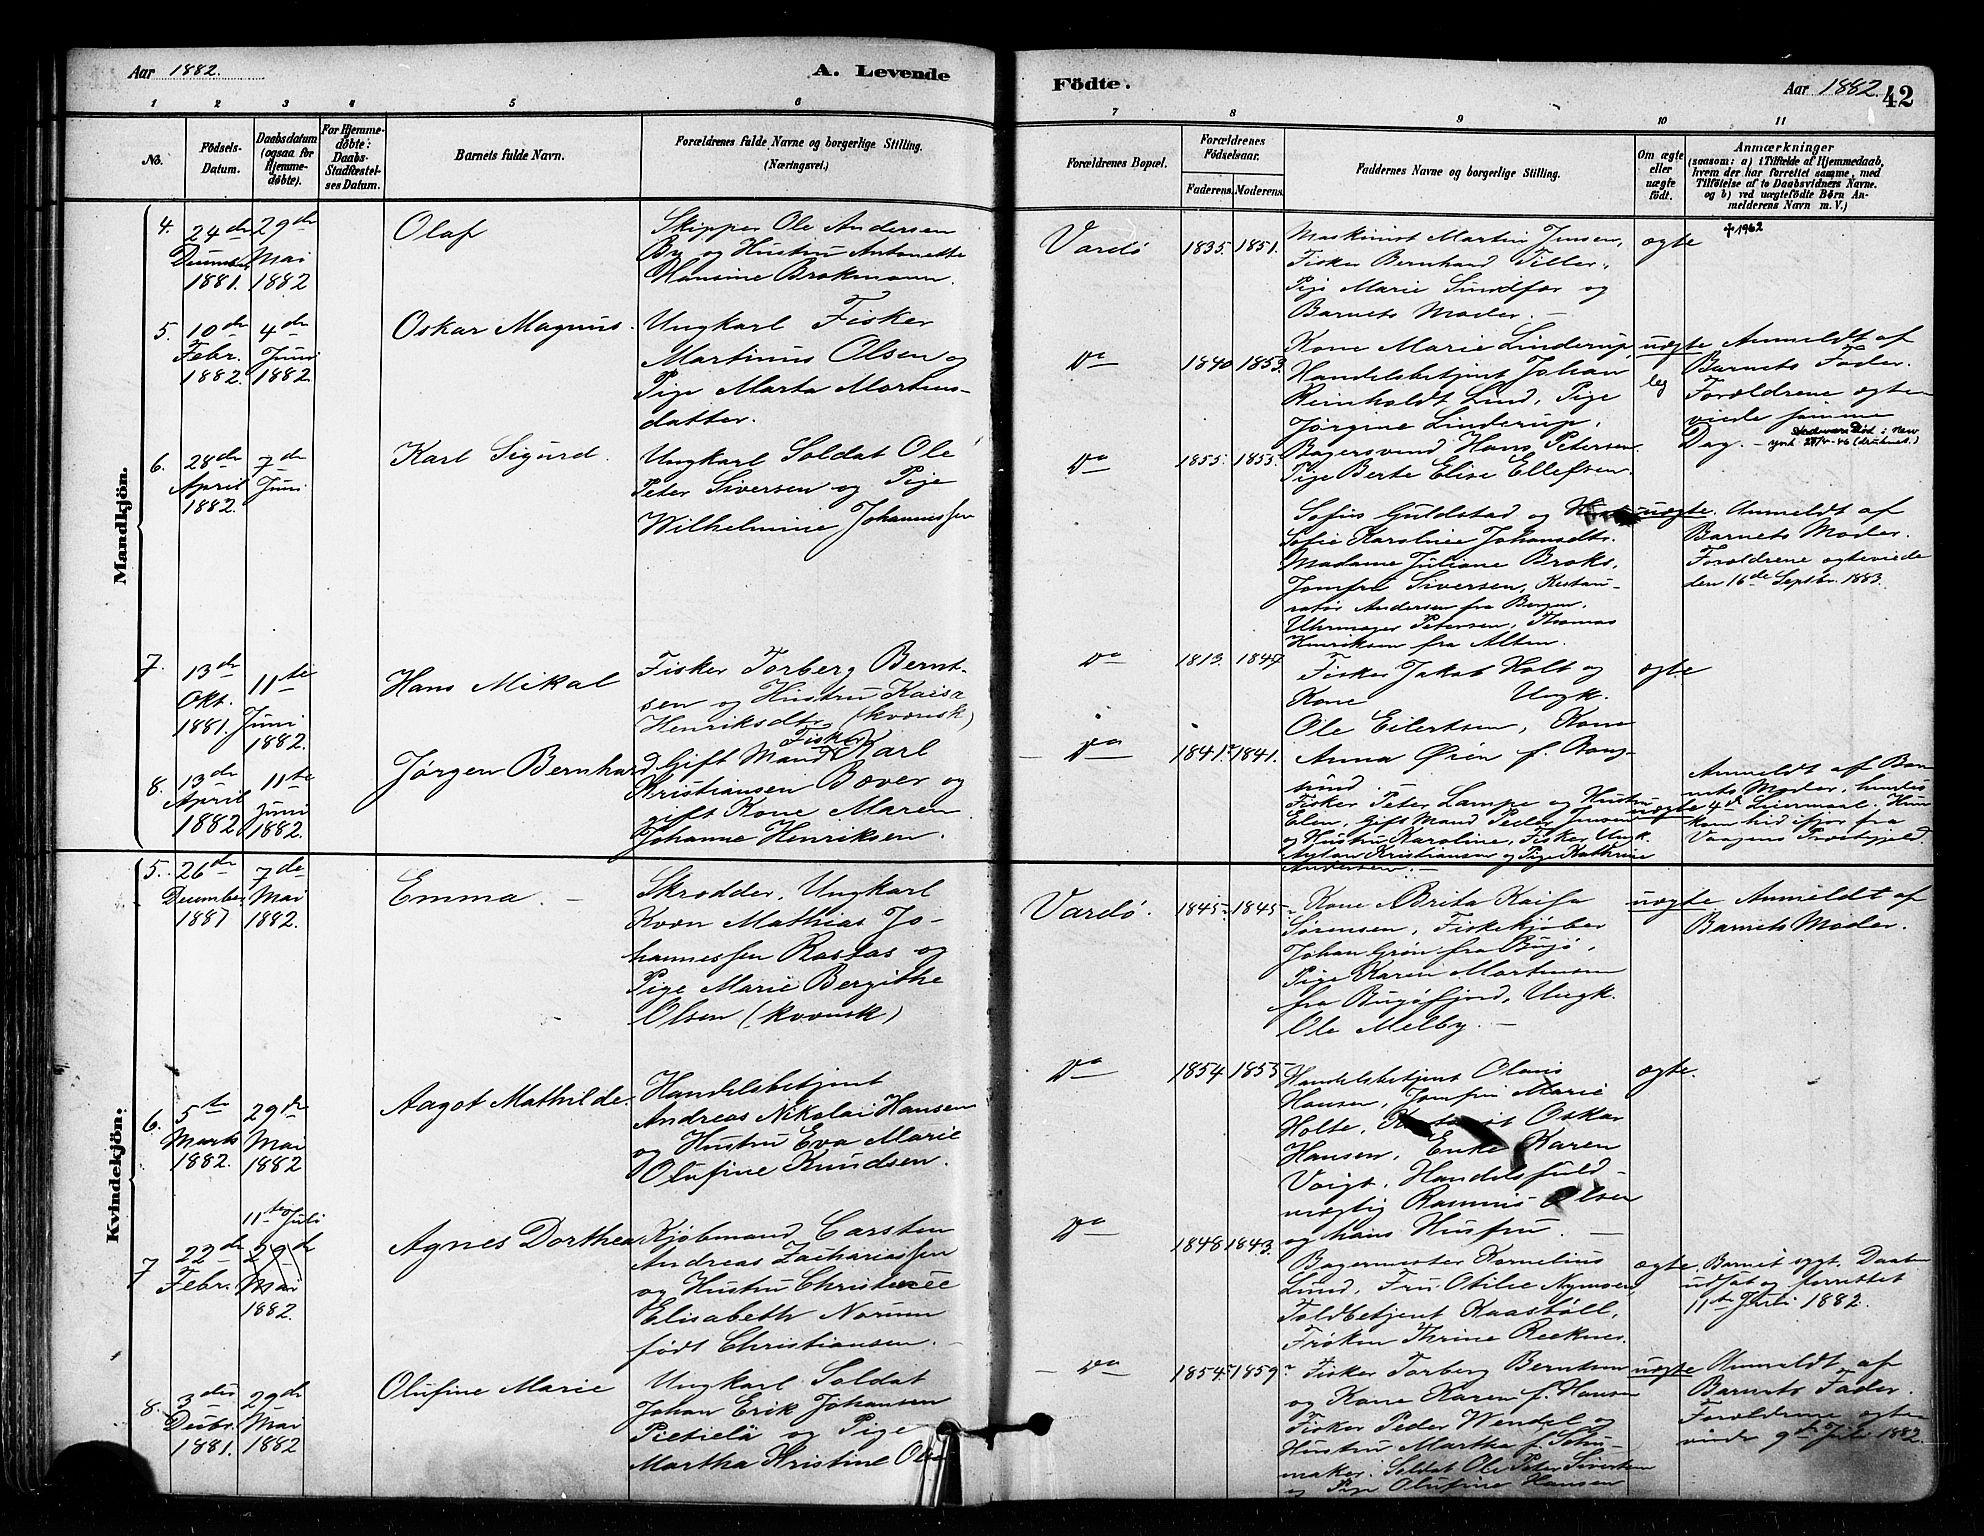 Aar 1882.
A. Levende
Födte.
Aar 1882. 42
1 2 3 4 5 6 7 8 9 10 11
No.
Födsels-
Datum.
Daabsdatum
(ogsaa for
Hjemme-
döbte).
For Hjemme-
döbte:
Daabs-
Stadfæstel-
ses Datum.
Barnets fulde Navn.
Forældrenes fulde Navne og borgerlige Stilling.
(Næringsvei.)
Forældrenes Bopæl.
Forældrenes
Födselsaar.
Faderens. Moderens.
Faddernes Navne og borgerlige Stilling.
Om ægte
eller
uægte
födt.
Anmærkninger
(saasom: a) i Tilfælde af Hjemmedaab,
hvem der har forrettet samme, med
Tilföielse af to Daabsvidners Navne.
og b) ved uægtefödte Börn An-
melderens Navn m. V.)
Mandkjön.
4.
24de
Decembr
1881.
29de
Mai
1882
Olaf
Skipper Ole Andersen
By og Hustru Antonette
Hansine Brokmann.
Vardö
1835. 1851.
Maskinist Martin Jensen,
Fisker Bernhard Tiller,
Pige Marie Sundfær og
Barnets Moder. —
ægte
✝1962
5.
10de
Febr.
1882.
4de
Juni
1882
Oskar Magnus.
Ungkarl Fisker
Martinus Olsen og
Pige Marta Mortens-
datter.
Do
1840 1853.
Kone Marie Linderup,
Handelsbetjent Johan
Reinholdt Lind, Pige
Jørgine Linderup,
Bagersvend Hans Petersen.
Pige Berte Elise Ellefsen.
uægte
leg
Anmeldt af
Barnets Fader.
Forældrene ægte
viede samme
Dag. —
6.
28de
April
1882.
7de
Juni
Karl Sigurd.
Ungkarl Soldat Ole
Peter Siversen og Pige
Wilhelmine Johannessen
Do
1855. 1853.
Sofus Guldstad og
Sofie Karoline Johansdtr.
Madame Juliane Broks,
Jomfru Siversen, Restau-
ratør Andersen fra Bergen,
Uhrmager Petersen, Thomas
Henriksen fra Alten.
uægte.
Anmeldt af
Barnets Moder.
Forældrene ægteviede
den 16de Septbr. 1883.
7.
13de
Okt.
1881.
11te
Juni
1882.
Hans Mikal
Fisker Torberg Bernt-
sen og Hustru Kaisa
Henriksdtr (kvænsk)
Do
1813. 1847
Fisker Jakob Holt og
Kone Ungk.
Ole Eilertsen, Kone
Anna Øien f. Bong-
sund. —
ægte
8.
13de
April
1882
11te
Juni
1882.
Jørgen Bernhard,
Gift Mand Fisker Karl
Kristiansen Bæver og
gift Kone Maren
Johanne Henriksen.
Do
1841. 1841.
Fisker Peter Lampe og Hustru
Elen, Gift Mand Peder Jensen
og Hustru Karoline, Fisker Ungk.
Kristiansen og Pige Kathrine
Andersen. —
uægte
Anmeldt af Bar
nets Moder, hendes
4de Leiermaal. Hun
kom hid ifjor fra
Vaagens Præstegjeld.
Kvindekjön.
5.
26de
December
1881
7de
Mai
1882.
Emma. —
Skrædder, Ungkarl
Kvæn Mathias Jo-
hannessen Rastas og
Pige Marie Bergithe
Olsen (kvænsk)
Vardö.
1845. 1845.
Kone Brita Kaisa
Sørensen, Fiskekjøber
Johan Grøn fra Bugø,
Pige Karen Martinsen
fra Bugøfjord, Ungk.
Ole Melby. —
uægte
Anmeldt af
Barnets Moder.
6.
5te
Marts
1882.
29de
Mai
1882
Aagot Mathilde.
Handelsbetjent
Andreas Nikolai Hansen
og Hustru Eva Marie
Olufine Knudsen.
Do
1854. 1855
Handelsbetjent Olaus
Hansen, Jomfru Marie
Holte, Oskar
Hansen, Enke Karen
Voigt, Handelsfuld-
mægtig Rasmus Olsen
og hans Husfru. —
ægte.
7
22de
Febr.
11te Juli
29de
Mai
1882.
Agnes Dorthea
Kjøbmand Carsten
Andreas Zachariassen
og Hustru Christine
Elisabeth Norum
født Christiansen. —
Do
1848 1843.
Bagermester Kornelius
Lund, Fru Otilie Nymoen,
Toldbetjent Kaasbøll,
Frøken Thrine Reeknes.
ægte.
Barnet sygt. Daaben
udsat og forrettet
11te Juli 1882.
8.
3die
Decbr.
1881.
29de
Mai
1882
Olufine Marie
Ungkarl Soldat
Johan Erik Johansen
Pietielä og Pige
Martha Kristine Olsen
Do
1854. 1859.
Fisker Torberg Berntsen
og Kone Karen f. Hansen
Fisker Peder Wendel og
Hustru Martha f. Schu-
maker. Soldat Ole Peter Sivertsen
og Pige Olufine Hansen
uægte
Anmeldt af
Barnets Fader.
Forældrene ægte
viede 9de Juli 1882.